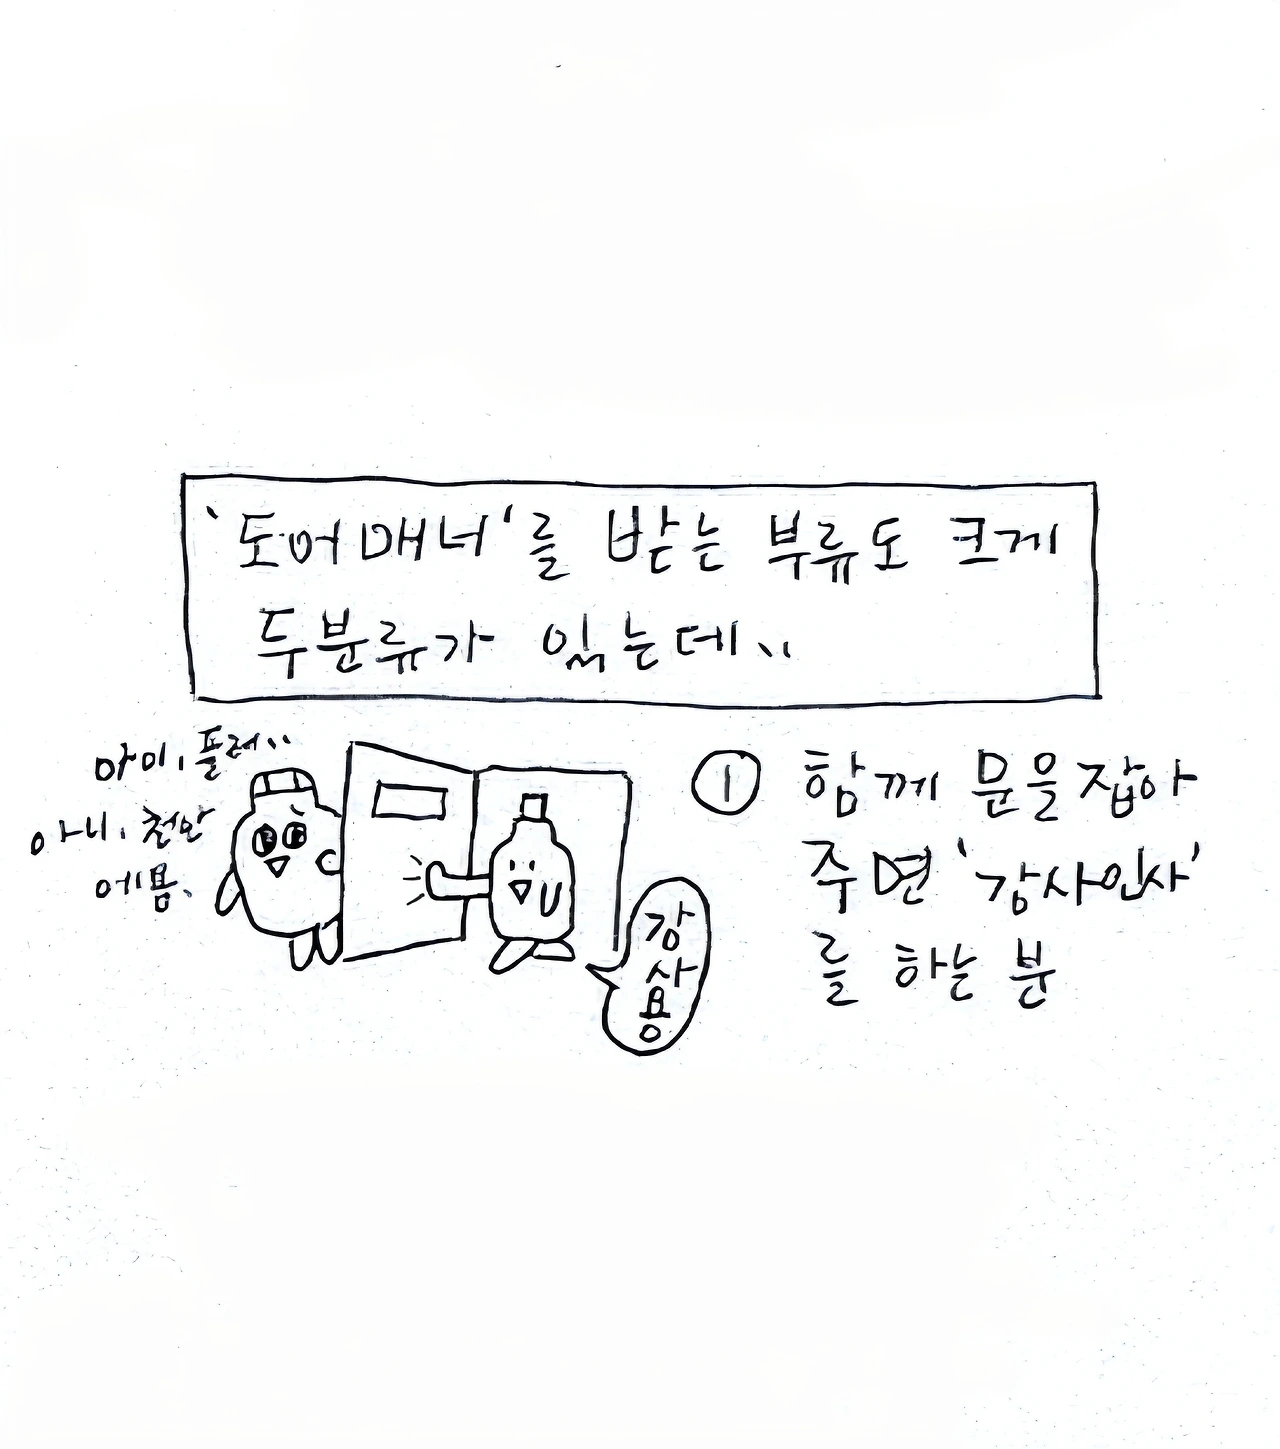 '도어매너'를 받는 부류도 크게
두분류가 있는데..
아이, 플러..
아니, 천만
에용.
감
사
용
① 함께 문을 잡아
주면 '감사인사'
를 하는 분